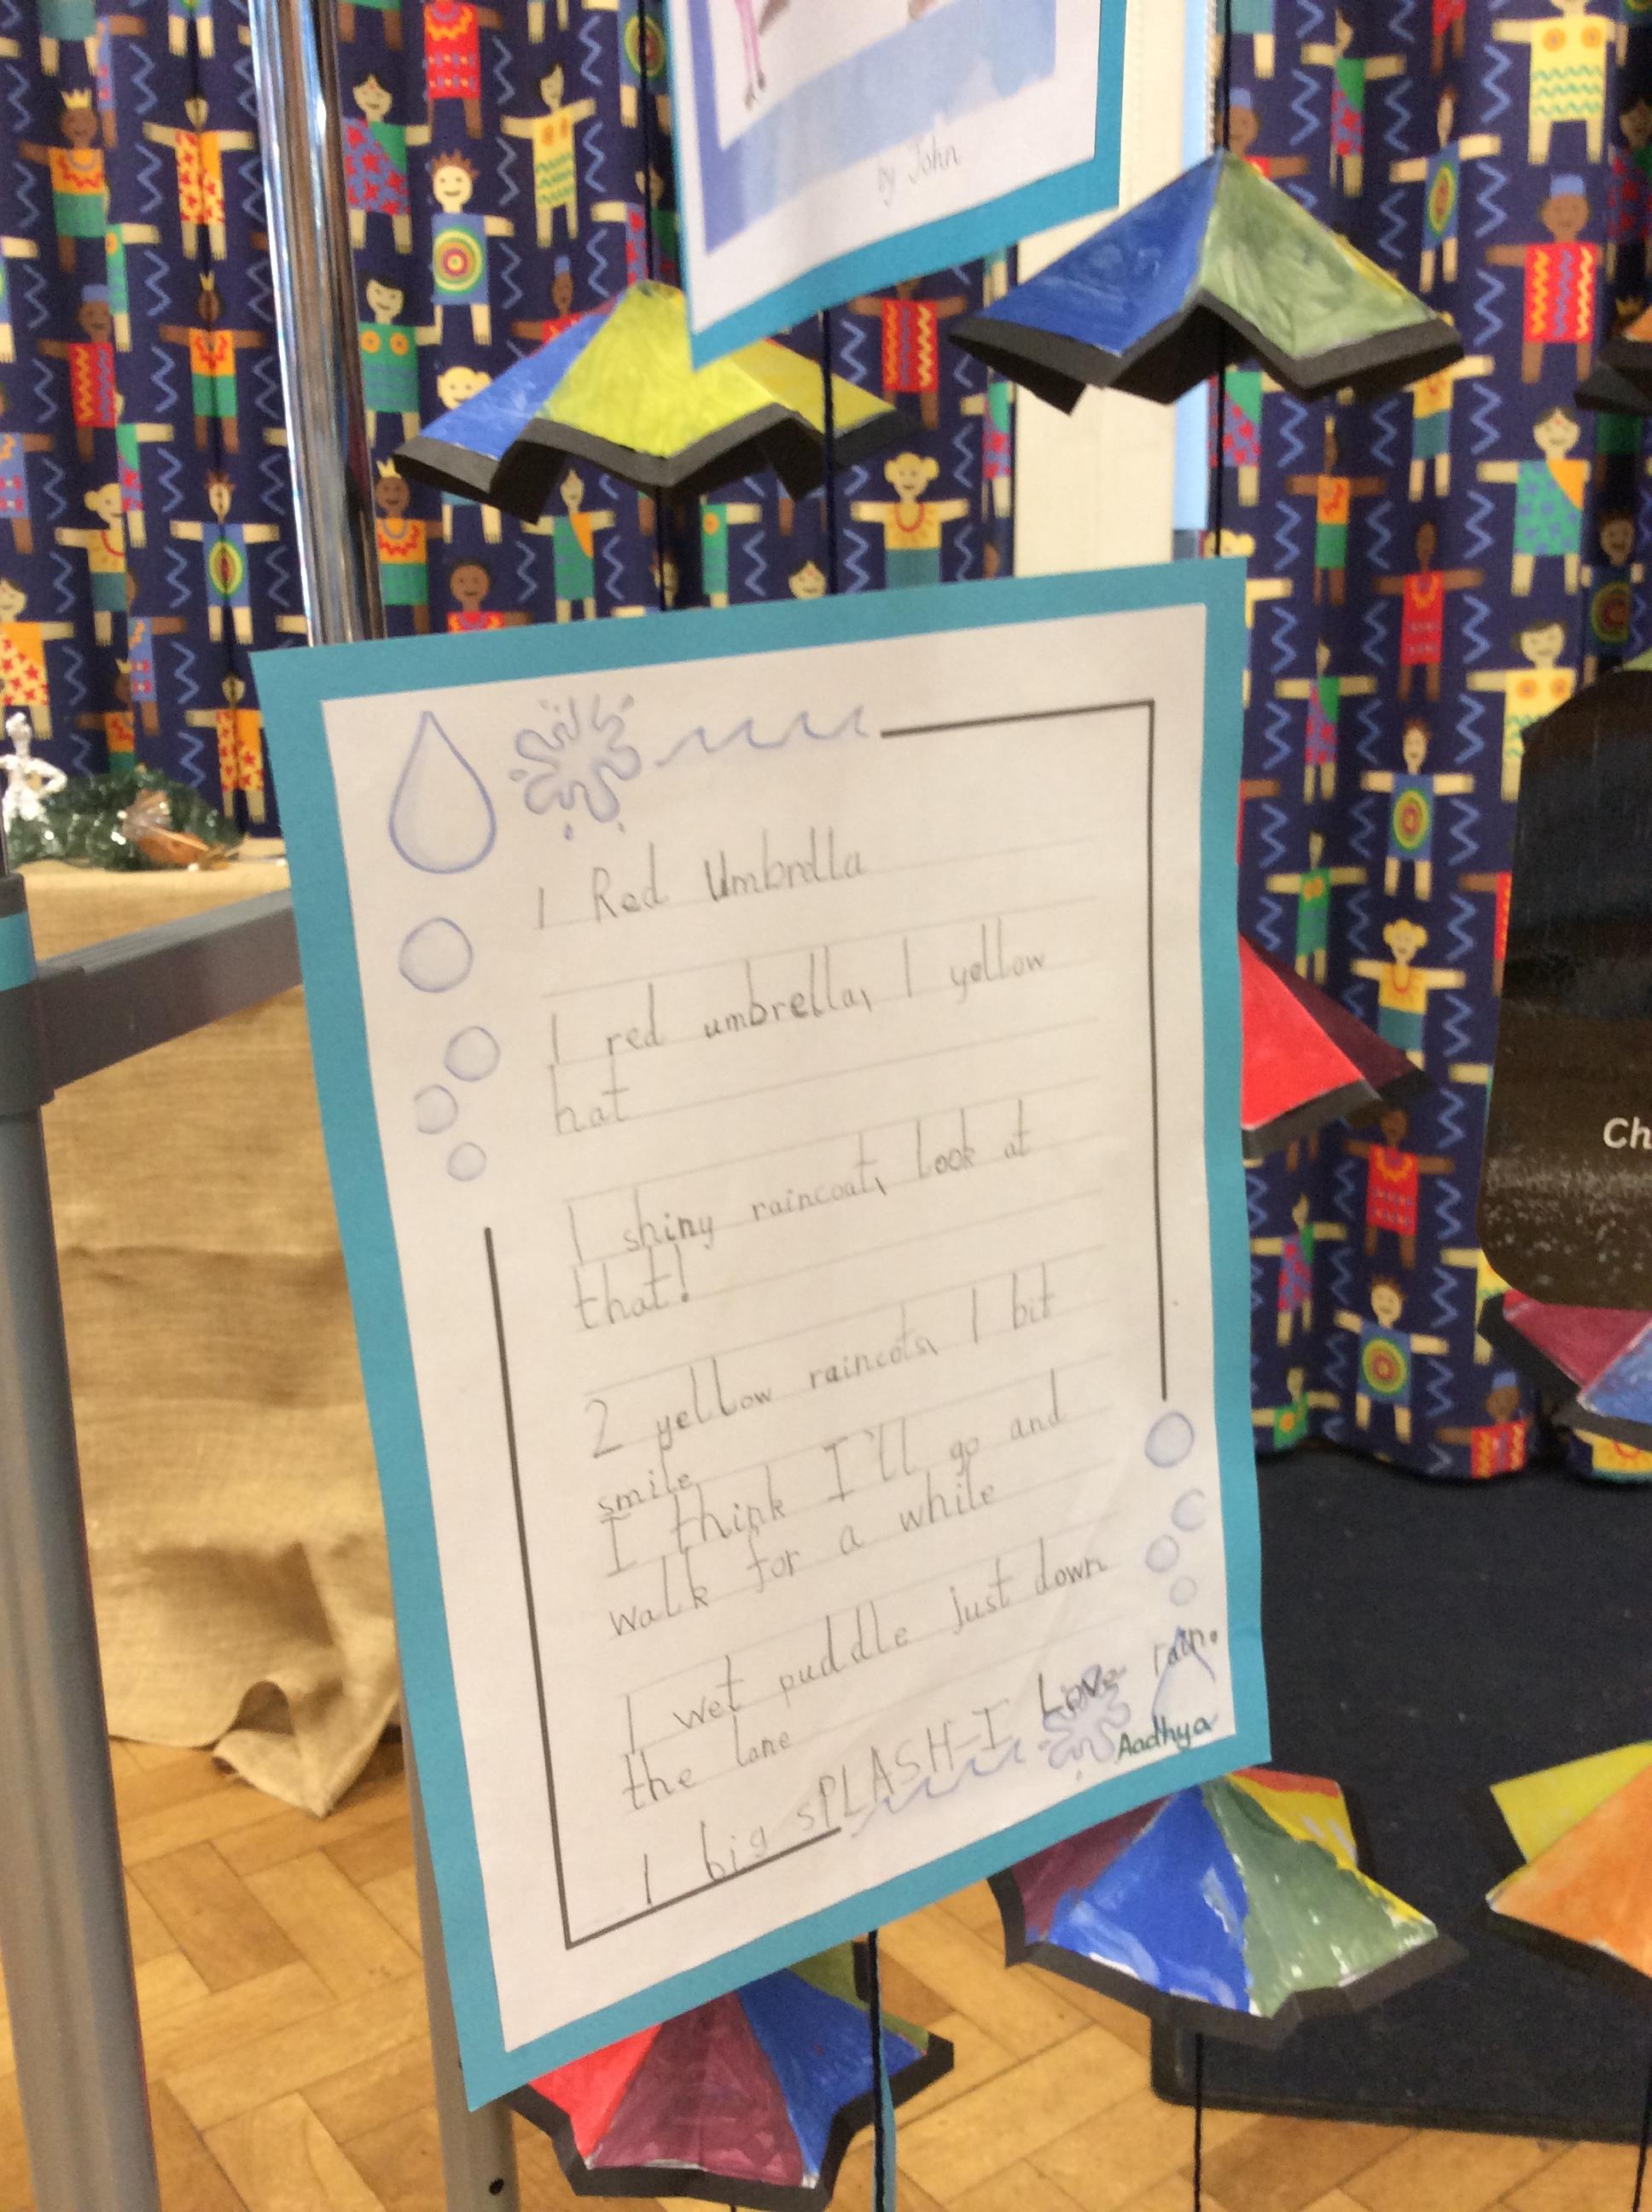 by John
1 Red Umbrella
1 red umbrella, 1 yellow
hat
1 shiny raincoat, Look at
that!
2 yellow raincots, 1 bit
smile
I think I'll go and
walk for a while
1 wet puddle just down
the lane
1 big sPLASH-I Love rain.
Aadhya
Ch